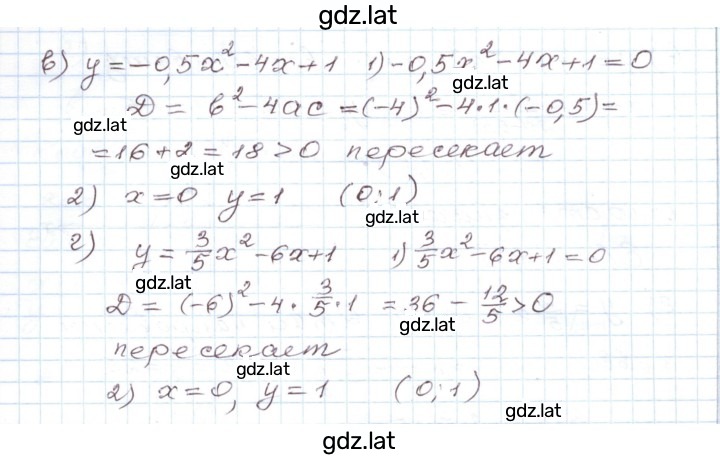 gdz.lat
в) y = -0,5x² - 4x + 1 1) -0,5x² - 4x + 1 = 0
gdz.lat
D = b² - 4ac = (-4)² - 4·1·(-0,5) =
gdz.lat
= 16 + 2 = 18 > 0 пересекает
gdz.lat
2) x = 0 y = 1 (0; 1)
gdz.lat
г) y = 3/5 x² - 6x + 1 1) 3/5 x² - 6x + 1 = 0
gdz.lat
D = (-6)² - 4 · 3/5 · 1 = 36 - 12/5 > 0
gdz.lat
пересекает
gdz.lat
2) x = 0, y = 1 (0; 1)
gdz.lat
gdz.lat